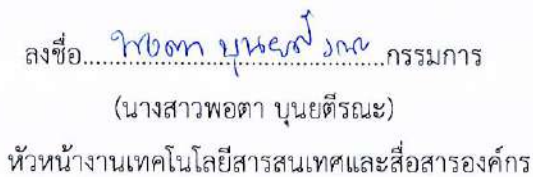 ลงชื่อ.....พอตา บุนยตีรณะ.....กรรมการ
(นางสาวพอตา บุนยตีรณะ)
หัวหน้างานเทคโนโลยีสารสนเทศและสื่อสารองค์กร